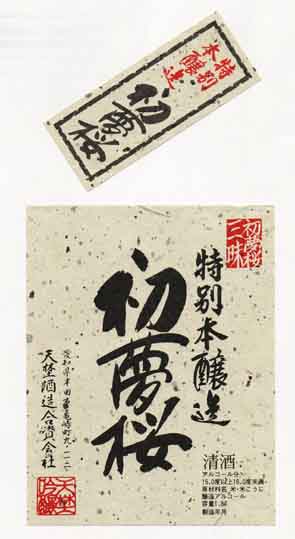 特別
本醸造
初夢桜
初夢桜
三昧
特別本醸造
初夢桜
清酒
アルコール分
15.0度以上16.0度未満
原材料名 米・米こうじ
醸造アルコール
容量1.8ℓ
製造年月
愛知県半田市亀崎町九ノ一二〇
天埜酒造合資会社
天埜
吟醸